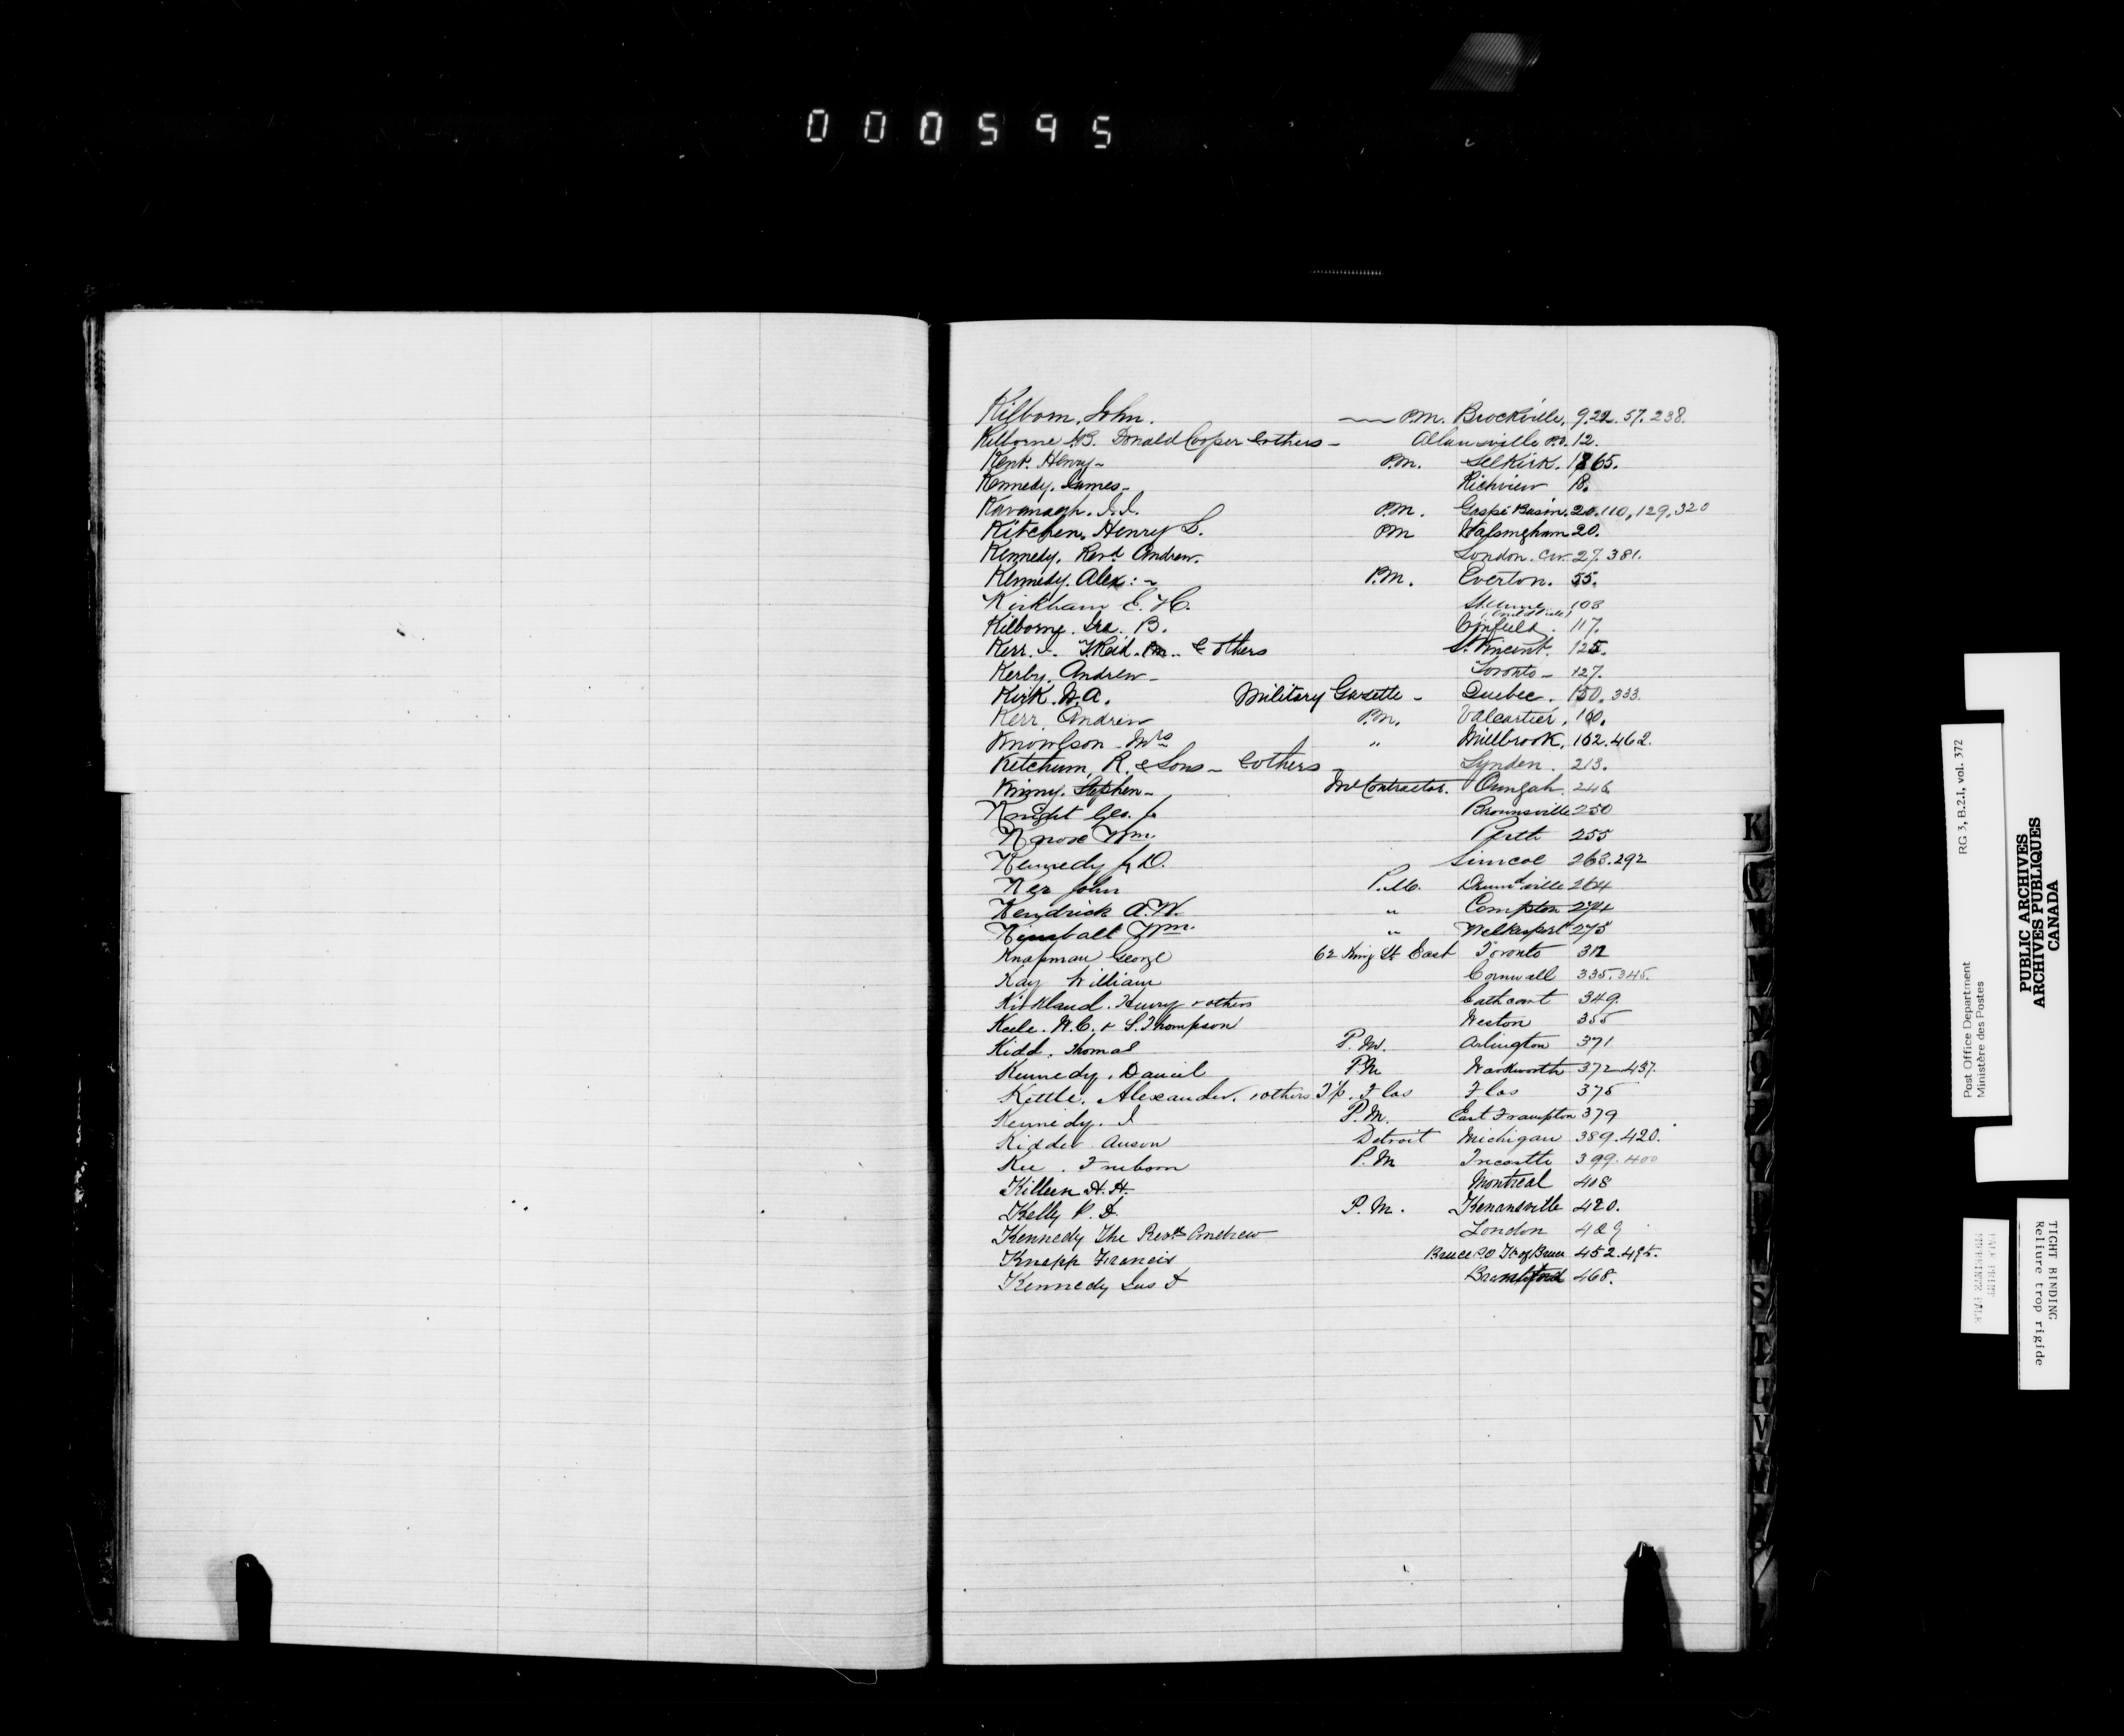 000595
Kilborn, John. P.M. Brockville, 9.22.57.238.
Kilborne Donald Cooper & others - Allansville P.O. 12.
Kent. Henry - P.M. Selkirk. 65.
Kennedy. James - Richview 18.
Kavanagh. J.J. P.M. Gaspé Basin. 20.110,129,320
Kitchen, Henry S. PM Walsingham 20.
Kennedy, Revd Andrew. London. C.W. 27.381.
Kennedy. Alex: - P.M. Everton. 55.
Kirkham E. H. 103
Kilborne. Ira. B. 117.
Kerr. & others St. Vincent. 125.
Kerby. Andrew - Toronto - 127.
Kirk. W.A. Military Gazette - Quebec. 150.333.
Kerr. Andrew P.M. Valcartier, 160.
Knowlson - Mrs " Millbrook, 162.462.
Ketchum, R. & Sons - & others - Lynden. 213.
Stephen - Contractor. 246
Knight Geo. Brownsville 250
Knox Wm. Perth 255
Kennedy J.D. Simcoe 263.292
Ker John P.M. Drumdville 264
Kendrick A.W. " Compton 274
Kimball Wm. " Welkerport 275
Knapman George 62 King St East Toronto 312
Kay William Cornwall 335.345.
Kirkland. Henry & others Cathcart 349.
Keele. W.C. & S. Thompson Weston 355
Kidd. Thomas P.M. Arlington 371
Kennedy. Daniel PM Warkworth 372-437.
Kettle. Alexander. & others T'p. Flos Flos 375
Kennedy. J P.M. East Frampton 379
Kidder Anson Detroit Michigan 389.420.
P.M 399.400
Killeen H.H. Montreal 408
Kelly P. P.M. Kenansville 420.
Kennedy The Revd Andrew London 429
Knapp Francis Bruce P.O. Bruce 452.495.
Kennedy Jas 468.
K
Post Office Department RG 3, B.2.1, vol. 372
Ministère des Postes
PUBLIC ARCHIVES
ARCHIVES PUBLIQUES
CANADA
TIGHT BINDING
Reliure trop rigide